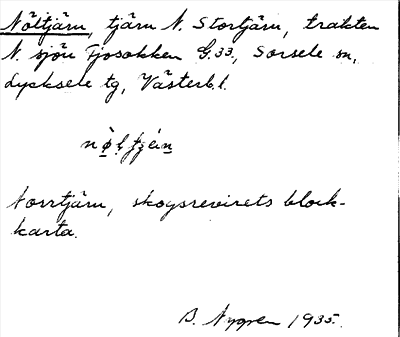 Nöltjärn, tjärn N. Stortjärn, trakten
N. sjön Tjosokken G.33, Sorsele sn,
Lycksele tg, Västerb.l.
nø̀l tjæ̀n
Norrtjärn, skogsrevirets block-
karta.
B. Nygren 1935.